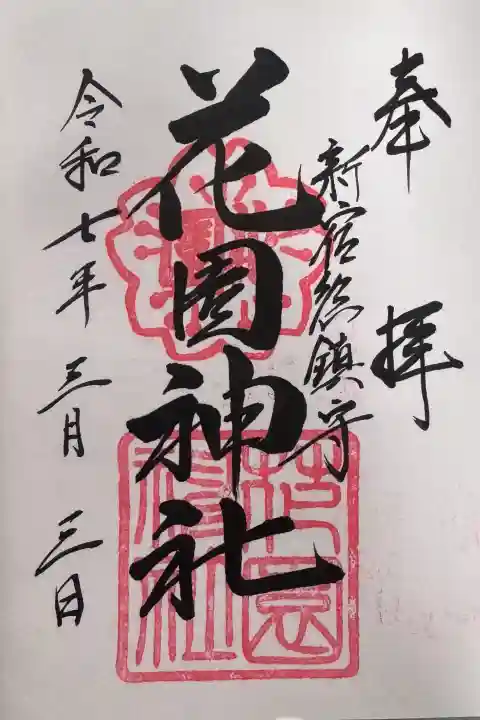 奉拝
新宿総鎮守
花園神社
令和七年三月三日